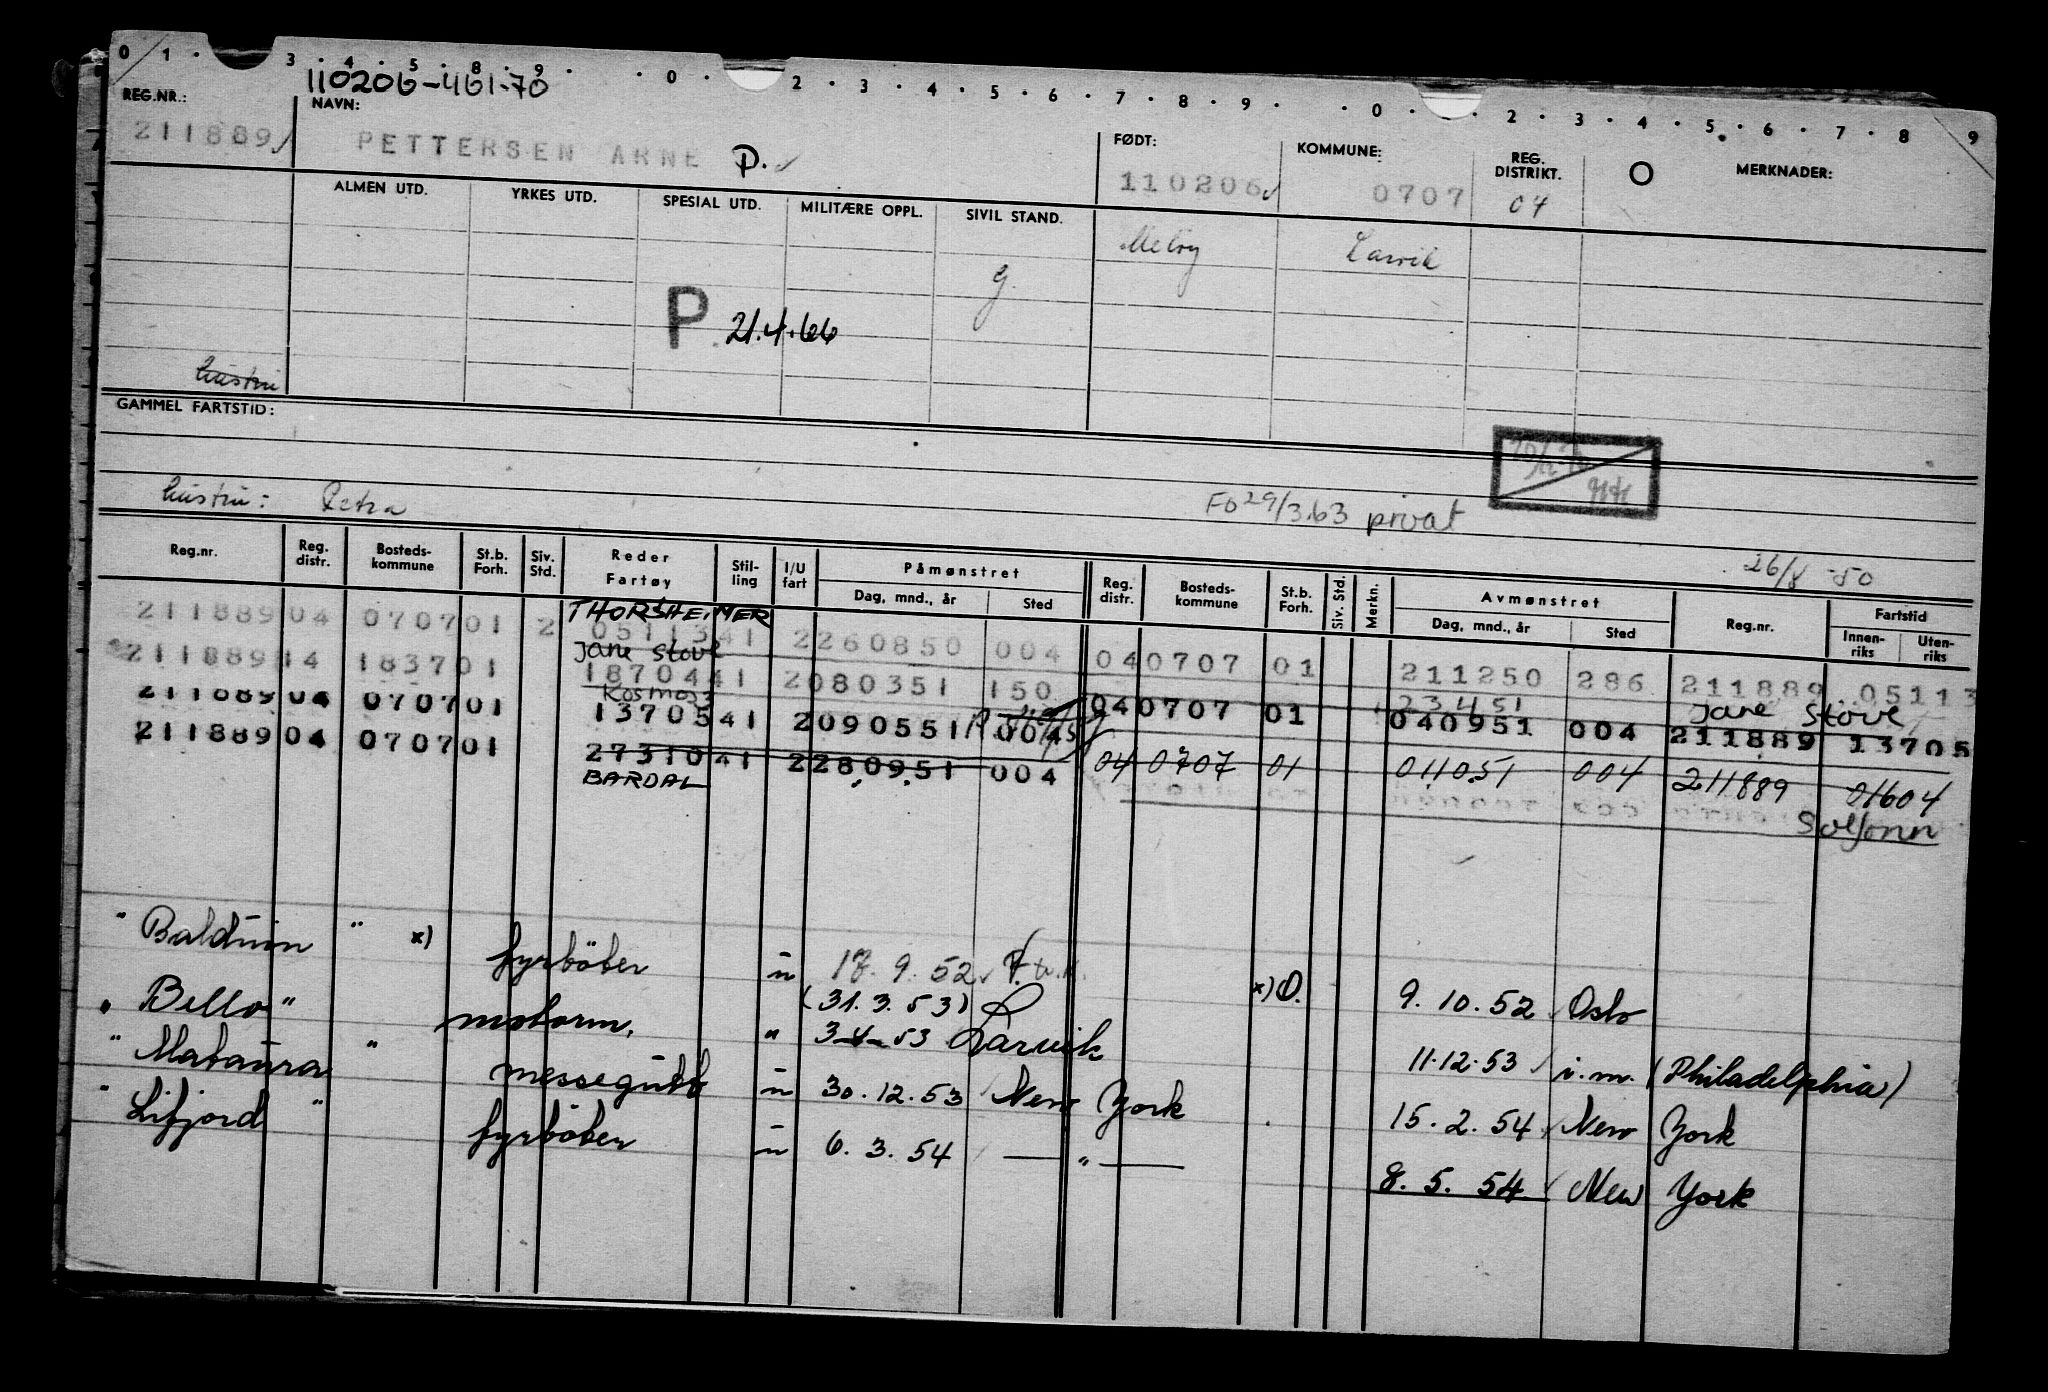 0 1 · 3 · 4 · 5 · 8 · 9 · · 0 · 2 · 3 · 4 · 5 · 6 · 7 · 8 · 9 · · 0 · 2 · 3 · 4 · 5 · 6 · 7 · 8 9
110206-461-70
REG.NR.: NAVN: FØDT: KOMMUNE: REG. DISTRIKT. O MERKNADER:
211889 PETTERSEN ARNE P. 110206 0707 04
ALMEN UTD. YRKES UTD. SPESIAL UTD. MILITÆRE OPPL. SIVIL STAND.
g. Larvik
P 21.4.66
hustru
GAMMEL FARTSTID:
hustru: Petra Fo 29/3.63 privat
26/8 -50
Reg.nr. Reg. distr. Bosteds- kommune St.b. Forh. Siv. Std. Reder Fartøy Stil- ling I/U fart Påmønstret Dag, mnd., år Sted Reg. distr. Bosteds- kommune St.b. Forh. Siv. Std. Merkn. Avmønstret Dag, mnd., år Sted Reg.nr. Fartstid Innen- riks Uten- riks
THORSHEIMER
211889 04 0707 01 2 05113 41 2 260850 004 04 0707 01 211250 286 211889 05113
Jane Stove
211889 14 1837 01 18704 41 2 080351 150 23451 Jane Stove
Kosmos 3
211889 04 0707 01 13705 41 2 090551 004 04 0707 01 040951 004 211889 13705
211889 04 0707 01 27310 41 2 280951 004 04 0707 01 011051 004 211889 01604
BARDAL Solfonn
" Balduin " x) fyrböter u 17. 9. 52 x) O. 9. 10. 52 Oslo
(31. 3. 53)
" Bello " motorm. " 3-4-53 Larvik 11.12.53 i.m. (Philadelphia)
" Mataura " messegutt u 30. 12. 53 New York 15. 2. 54 New York
" Lifjord " fyrböter u 6. 3. 54 — " — 8. 5. 54 New York